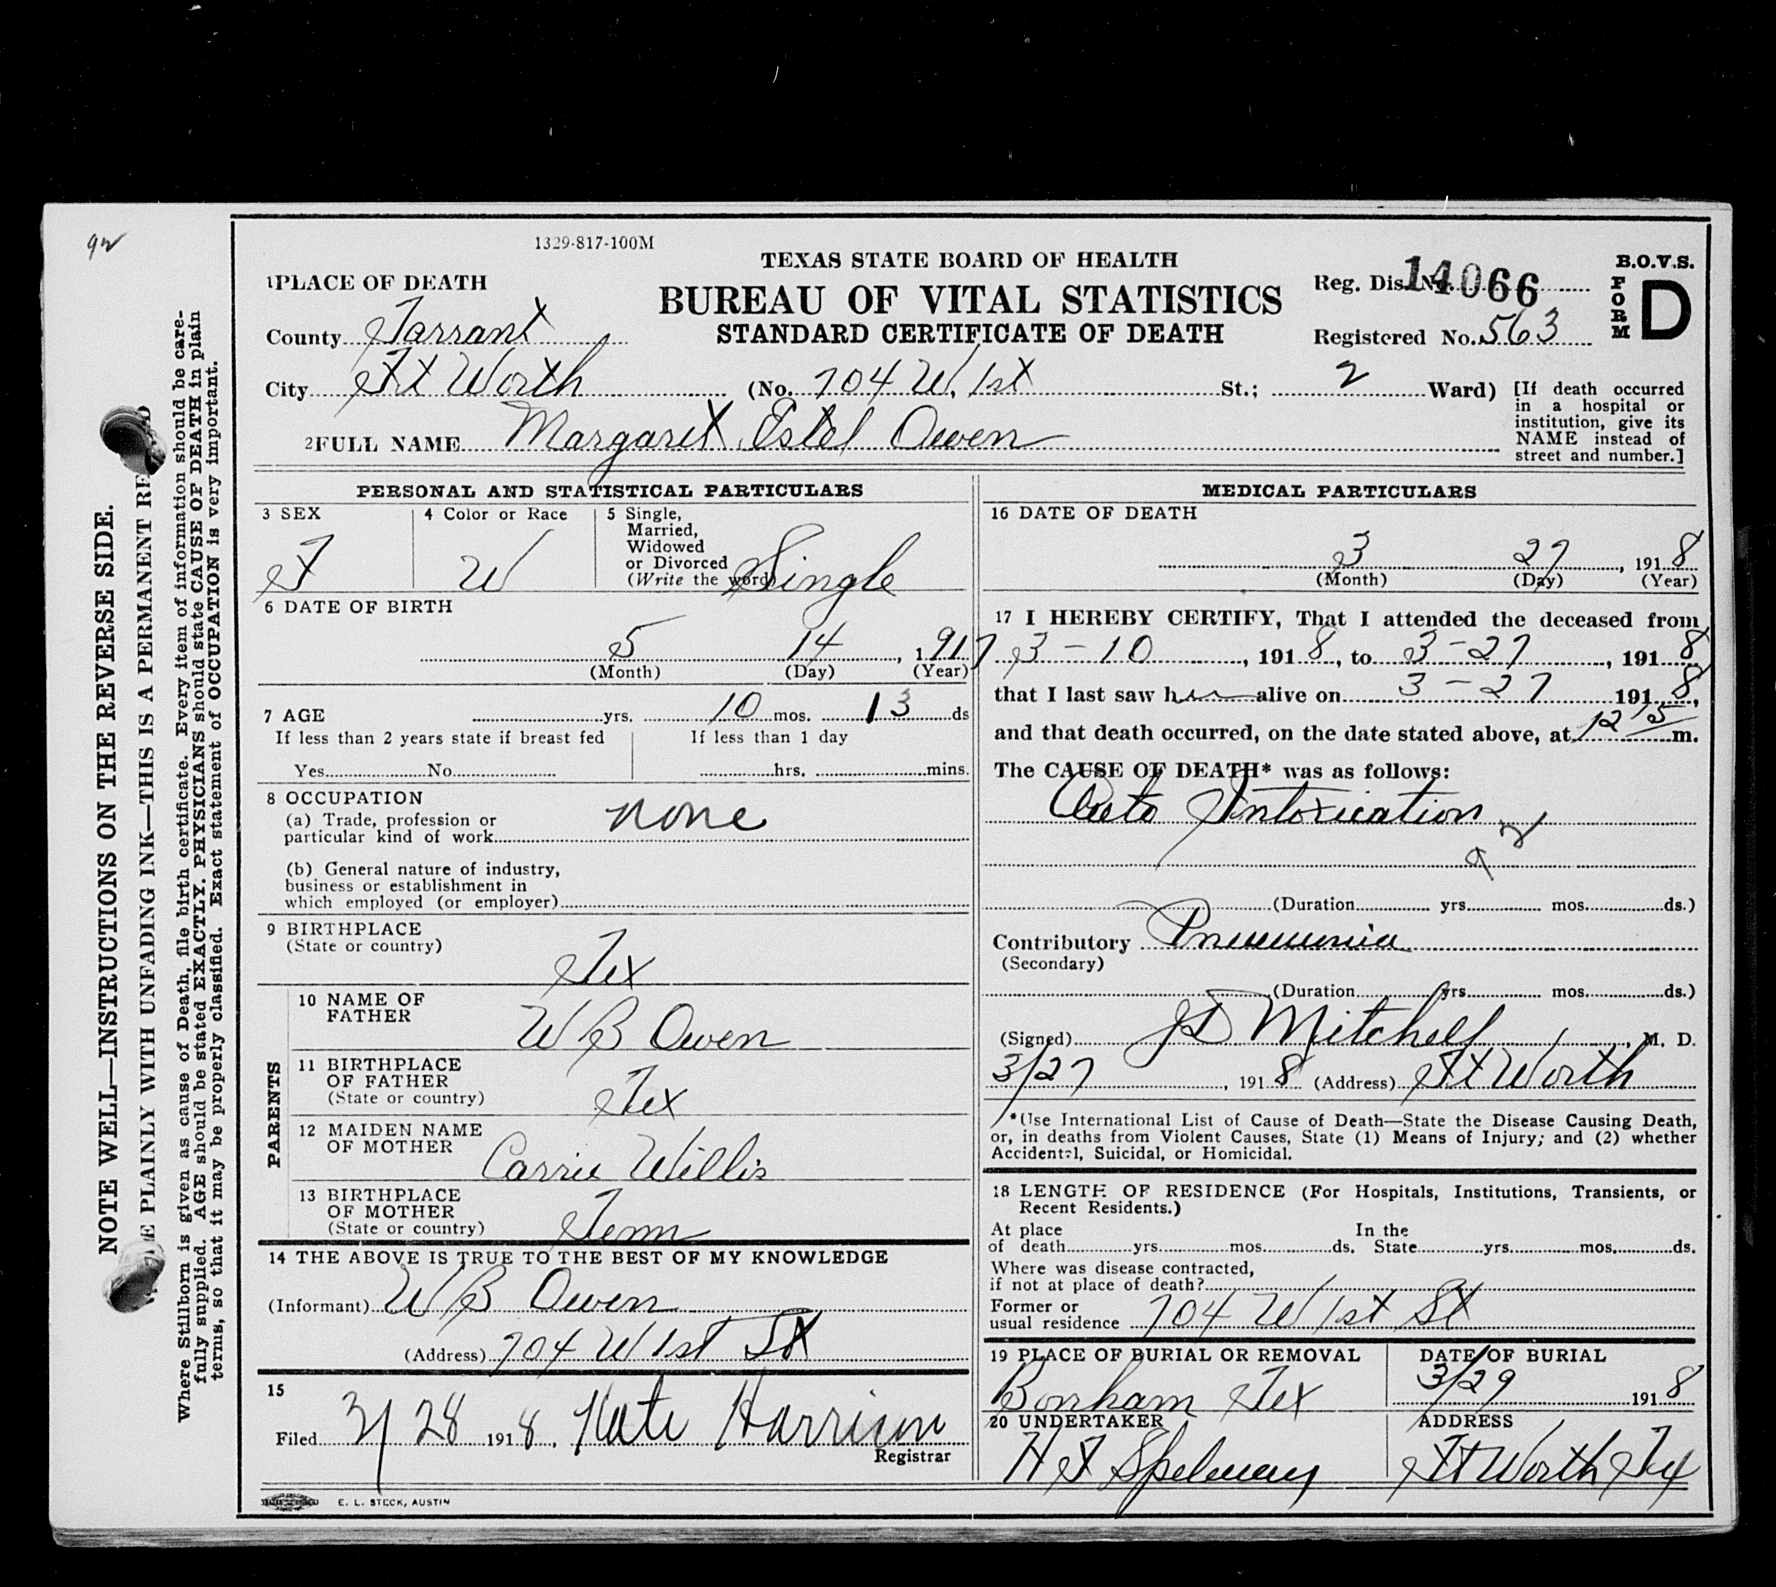 92
1329-817-100M
TEXAS STATE BOARD OF HEALTH
BUREAU OF VITAL STATISTICS
STANDARD CERTIFICATE OF DEATH
Reg. Dis. No. 14066
Registered No. 563
B.O.V.S.
FORM D
1 PLACE OF DEATH
County Tarrant
City Ft Worth (No. 704 W. 1st St.; 2 Ward)
[If death occurred
in a hospital or
institution, give its
NAME instead of
street and number.]
2 FULL NAME Margaret Estel Owen
PERSONAL AND STATISTICAL PARTICULARS
3 SEX
F
4 Color or Race
W
5 Single,
Married,
Widowed
or Divorced
(Write the word) Single
6 DATE OF BIRTH
5 14, 1917
(Month) (Day) (Year)
7 AGE yrs. 10 mos. 13 ds
If less than 2 years state if breast fed
Yes No
If less than 1 day
hrs. mins.
8 OCCUPATION
(a) Trade, profession or
particular kind of work none
(b) General nature of industry,
business or establishment in
which employed (or employer)
9 BIRTHPLACE
(State or country)
Tex
PARENTS
10 NAME OF
FATHER
W B Owen
11 BIRTHPLACE
OF FATHER
(State or country)
Tex
12 MAIDEN NAME
OF MOTHER
Carrie Willis
13 BIRTHPLACE
OF MOTHER
(State or country)
Tenn
14 THE ABOVE IS TRUE TO THE BEST OF MY KNOWLEDGE
(Informant) W B Owen
(Address) 704 W 1st St
15
Filed 3/28 1918. Kate Harrison
Registrar
E. L. STECK, AUSTIN
MEDICAL PARTICULARS
16 DATE OF DEATH
3 27, 1918
(Month) (Day) (Year)
17 I HEREBY CERTIFY, That I attended the deceased from
3-10, 1918, to 3-27, 1918
that I last saw her alive on 3-27 1918,
and that death occurred, on the date stated above, at 12 15 m.
The CAUSE OF DEATH* was as follows:
Auto Intoxication
92
(Duration yrs mos. ds.)
Contributory Pneumonia
(Secondary)
(Duration yrs mos. ds.)
(Signed) JD Mitchell, M. D.
3/27, 1918 (Address) Ft Worth
*Use International List of Cause of Death—State the Disease Causing Death,
or, in deaths from Violent Causes, State (1) Means of Injury; and (2) whether
Accidental, Suicidal, or Homicidal.
18 LENGTH OF RESIDENCE (For Hospitals, Institutions, Transients, or
Recent Residents.)
At place
of death yrs. mos. ds.
In the
State yrs. mos. ds.
Where was disease contracted,
if not at place of death?
Former or
usual residence 704 W 1st St
19 PLACE OF BURIAL OR REMOVAL
Bonham Tex
DATE OF BURIAL
3/29 1918
20 UNDERTAKER
ADDRESS
Ft Worth Tex
NOTE WELL—INSTRUCTIONS ON THE REVERSE SIDE.
PLAINLY WITH UNFADING INK—THIS IS A PERMANENT RE
Where Stillborn is given as cause of Death, file birth certificate. Every item of information should be care-
fully supplied. AGE should be stated EXACTLY. PHYSICIANS should state CAUSE OF DEATH in plain
terms, so that it may be properly classified. Exact statement of OCCUPATION is very important.